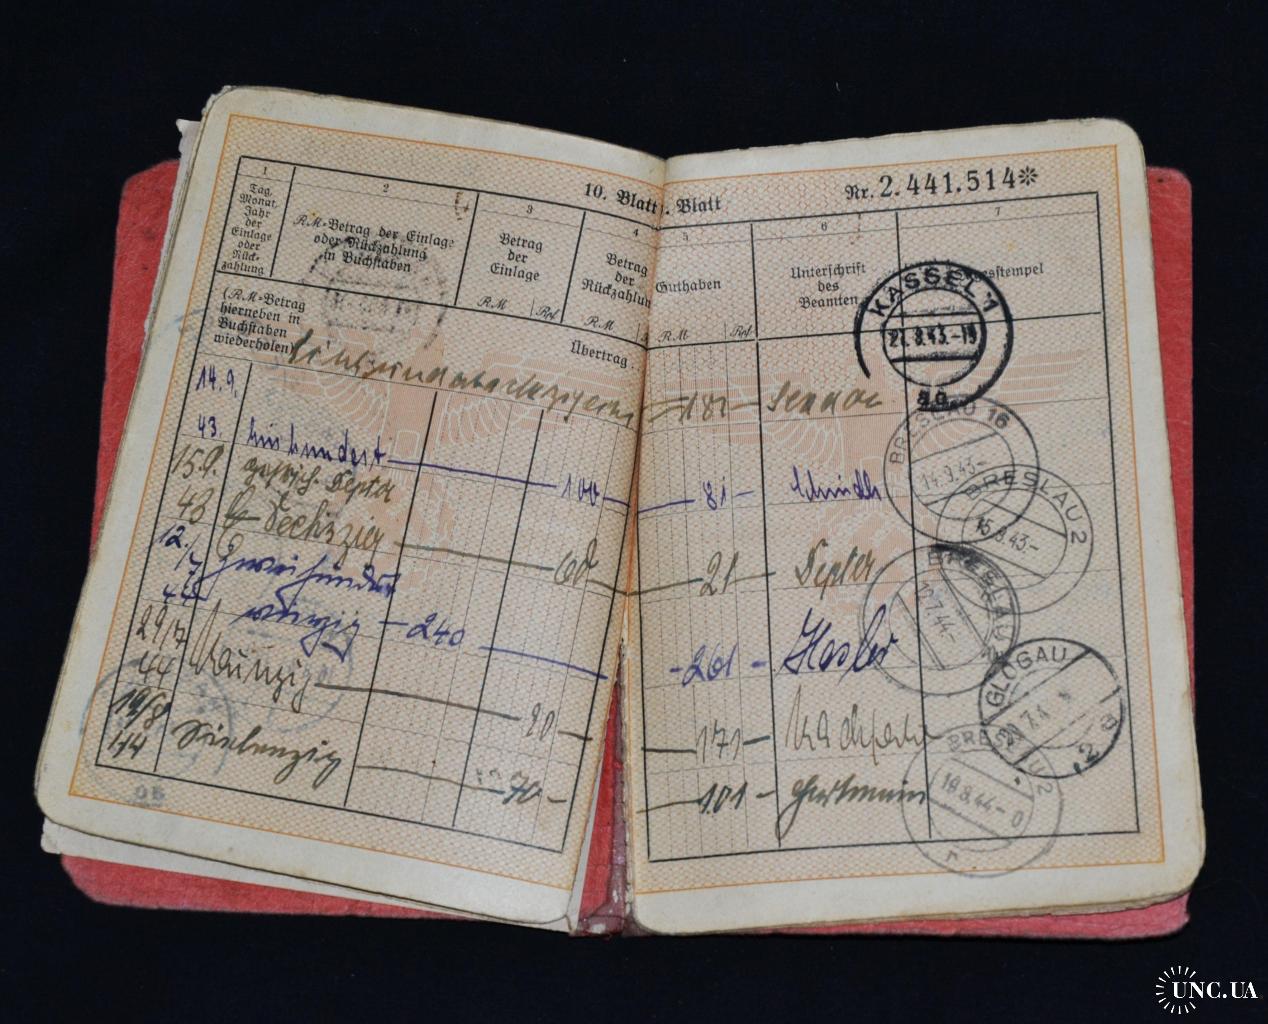 10. Blatt
. Blatt
Nr. 2.441.514*
1
2
3
4
5
6
7
Tag,
Monat,
Jahr
der
Einlage
oder
Rück-
zahlung
RM-Betrag der Einlage
oder Rückzahlung
in Buchstaben
Betrag
der
Einlage
RM Rpf
Betrag
der
Rückzahlun
RM
Guthaben
RM Rpf
Unterschrift
des
Beamten
esstempel
(RM-Betrag
hierneben in
Buchstaben
wiederholen)
Übertrag
181 —
14.9.
43. Einhundert — 100 — 81 —
15.9.
43 Sechzig — 60 — 21 —
12./7
44 Zweihundert
vierzig — 240 — 261 —
29/7
44 Neunzig — 90 — 171 —
19/8
44 Siebenzig — 70 — 101 — Hartmann
KASSEL 1
21.8.43.-19
BRESLAU 16
14.9.43-
BRESLAU 2
15.9.43-
BRESLAU
.7.44-
GLOGAU
2
BRES
19.8.44-0
UNC.UA